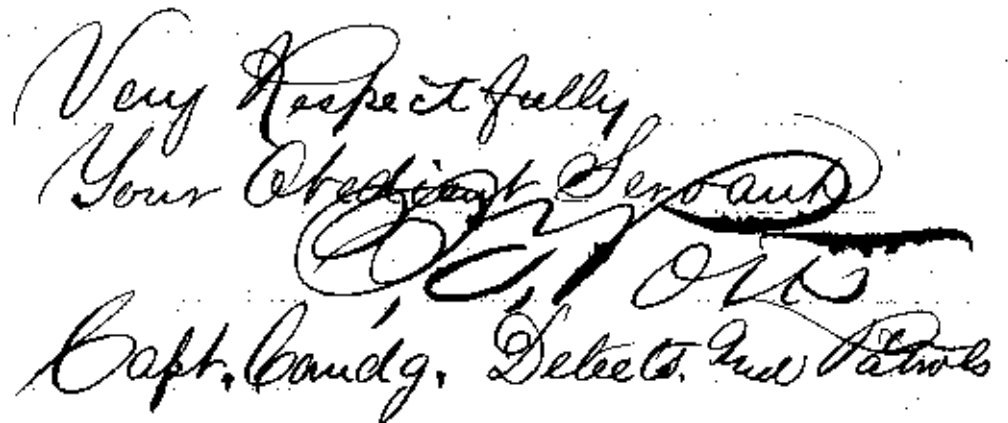 Very Respectfully
Your Obedient Servant
Capt. Comdg. Detects. and Patrols